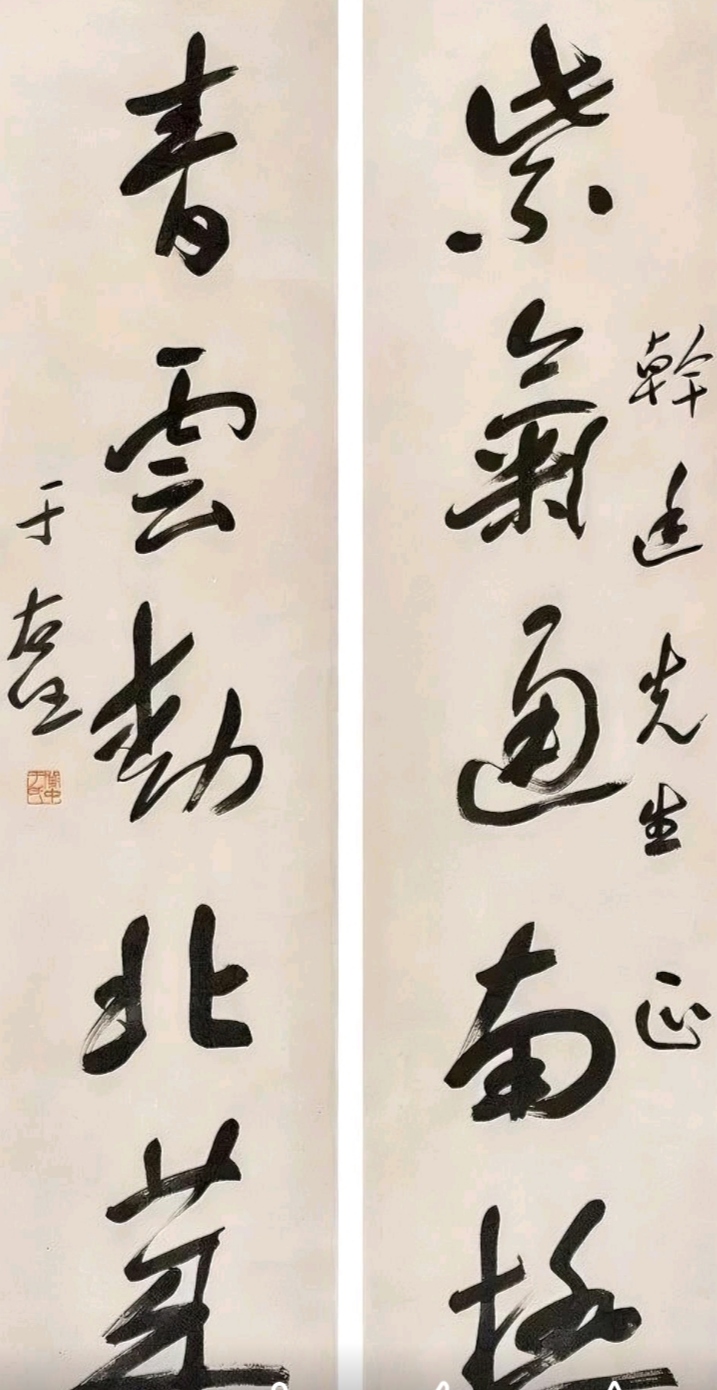 幹廷先生 正
紫氣通南極
青雲動北
于右任
關中于氏